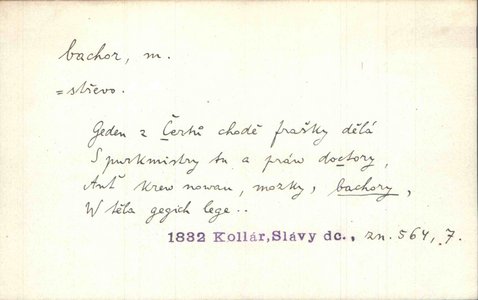 bachor, m.
=střevo.
Geden z Čertů chodě frašky dělá
S purkmistry tu a práw doctory,
Anť krew nowau, mozky, bachory,
W těla gegich lege..
1832 Kollár, Slávy dc., zn. 564, 7.